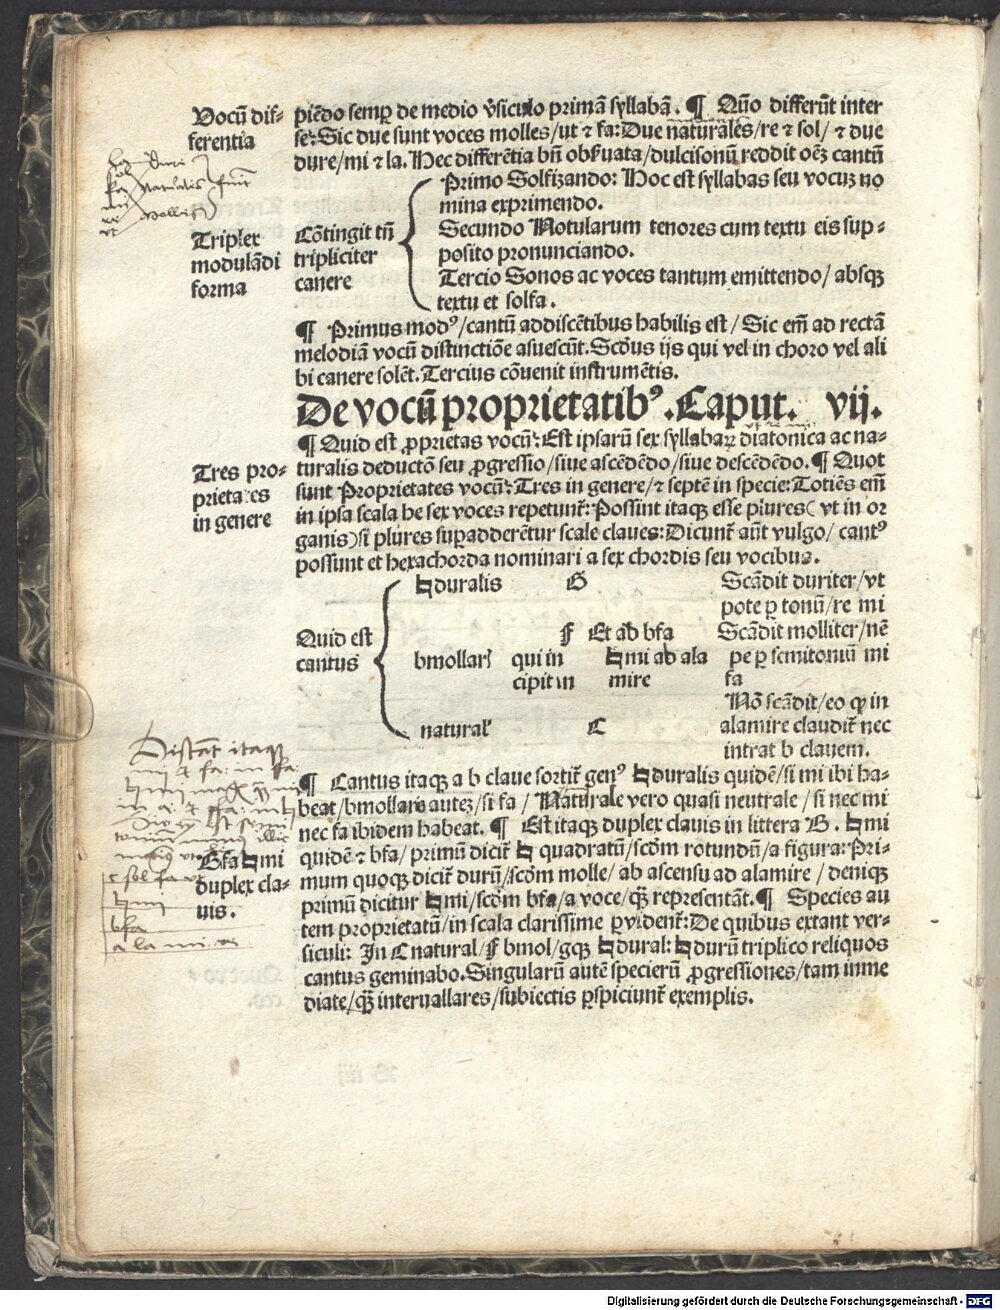 Vocū dif-
ferentia
piēdo semꝑ de medio v̓siculo primā syllabā. ¶ Qūo differūt inter
se: Sic due sunt voces molles/ut ⁊ fa: Due naturales/re ⁊ sol/ ⁊ due
dure/mi ⁊ la. Hec differētia bn̄ obs̓uata/dulcisonū reddit oēꝫ cantū
Triplex
modulādi
forma
Cōtingit tn̄
tripliciter
canere
Primo Solfizando: Hoc est syllabas seu vocuꝫ no
mina exprimendo.
Secundo Notularum tenores cum textu eis sup-
posito pronunciando.
Tercio Sonos ac voces tantum emittendo/ absqꝫ
textu et solfa.
¶ Primus modꝰ/cantū addiscētibus habilis est/ Sic em̄ ad rectā
melodiā vocū distinctiōe asuescūt. Scd̄us ijs qui vel in choro vel ali
bi canere solēt. Tercius cōuenit instrumētis.
De vocū proprietatibꝰ. Caput. vij.
Tres pro-
prietates
in genere
¶ Quid est ꝓprietas vocū: Est ipsarū sex syllabaꝝ diatonica ac na-
turalis deductō seu ꝓgressio/siue ascēdēdo/siue descēdēdo. ¶ Quot
sunt Proprietates vocū: Tres in genere/⁊ septē in specie: Totiēs em̄
in ipsa scala he sex voces repetunt᷑: Possint itaqꝫ esse plures( vt in or
ganis)si plures sup̄adderētur scale claues: Dicunt᷑ aūt vulgo/ cantꝰ
possunt et hexachorda nominari a sex chordis seu vocibus.
Quid est
cantus
♮duralis G Scādit duriter/vt
pote ꝑ tonū/re mi
F Et ad bfa Scādit molliter/nē
bmollarꝭ qui in ♮mi ab ala pe ꝑ semitoniū mi
cipit in mire fa
Nō scādit/eo ꝙ in
naturalꝭ C alamire claudit᷑ nec
intrat b clauem.
¶ Cantus itaqꝫ a b claue sortit᷑ genꝰ ♮duralis quidē/si mi ibi ha-
beat/bmollaris auteꝫ/si fa / Naturale vero quasi neutrale / si nec mi
nec fa ibidem habeat. ¶ Est itaqꝫ duplex clauis in littera B. ♮mi
Bfa♮mi
duplex cla-
uis.
quidē ⁊ bfa/ primū dicit᷑ ♮ quadratū/scd̄m rotundū/a figura: Pri-
mum quoqꝫ dicit᷑ durū/scd̄m molle/ ab ascensu ad alamire / deniqꝫ
primū dicitur ♮mi/scd̄m bfa/a voce/qꝫ̄ representāt. ¶ Species au
tem proprietatū/in scala clarissime ꝑvident᷑: De quibus extant ver-
siculi: In C natural/F bmol/gqꝫ ♮dural: ♮durū triplico reliquos
cantus geminabo. Singularū autē specierū ꝓgressiones/tam inme
diate/qꝫ̄ interuallares/subiectis ꝑspiciunt᷑ exemplis.
Digitalisierung gefördert durch die Deutsche Forschungsgemeinschaft - DFG